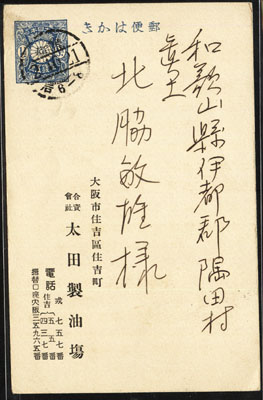 郵便はかき
和歌山縣伊都郡隅田村
北脇敏雄様
大阪市住吉區住吉町
合資會社 太田製油場
電話 戎 七五七番
住吉
振替口座大阪三五九六五番